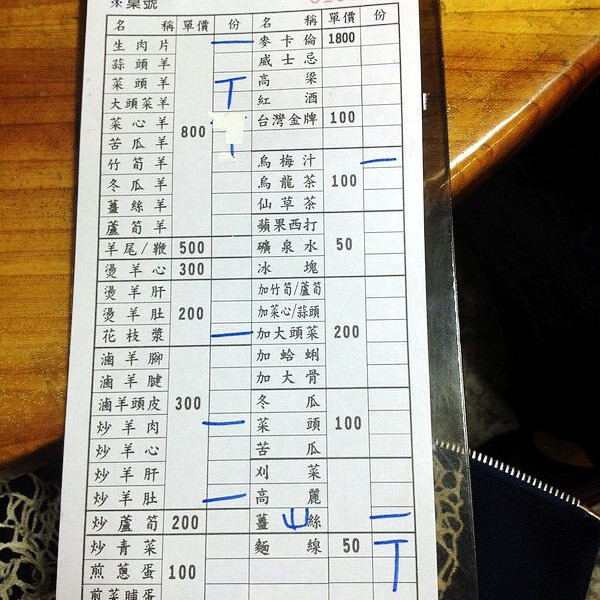 桌號
名稱 單價 份 名稱 單價 份
生肉片 麥卡倫 1800
蒜頭羊 威士忌
菜頭羊 高粱
大頭菜羊 紅酒
菜心羊 800 台灣金牌 100
苦瓜羊
竹筍羊 烏梅汁
冬瓜羊 烏龍茶 100
薑絲羊 仙草茶
蘆筍羊 蘋果西打
羊尾/鞭 500 礦泉水 50
燙羊心 300 冰塊
燙羊肝 加竹筍/蘆筍
燙羊肚 200 加菜心/蒜頭
花枝漿 加大頭菜 200
滷羊腳 加蛤蜊
滷羊腱 加大骨
滷羊頭皮 300 冬瓜
炒羊肉 菜頭 100
炒羊心 苦瓜
炒羊肝 刈菜
炒羊肚 高麗
炒蘆筍 200 薑絲
炒青菜 麵線 50
煎蔥蛋 100
煎菜脯蛋